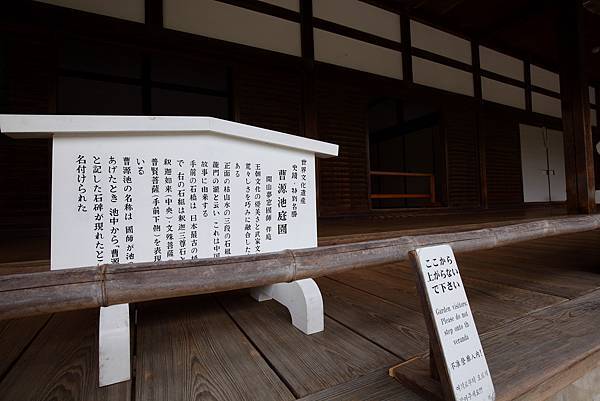 世界文化遺産
史蹟・特別名勝
曹源池庭園
開山夢窓國師 作庭
王朝文化の優美さと武家文
荒々しさを巧みに融合した
ある
正面の枯山水の三段の石組
龍門の瀧と云い これは中国
故事に由来する
手前の石橋は 日本最古の橋
で 右の石組は釈迦三尊石と
釈迦如来(中央)文殊菩薩(
普賢菩薩(手前下側)を表現
いる
曹源池の名称は 國師が池
あげたとき 池中から「曹源
と記した石碑が現れたとこ
名付けられた
ここから
上がらない
で下さい
Garden visitors,
Please do not
step onto the
veranda
不准登廊入内!